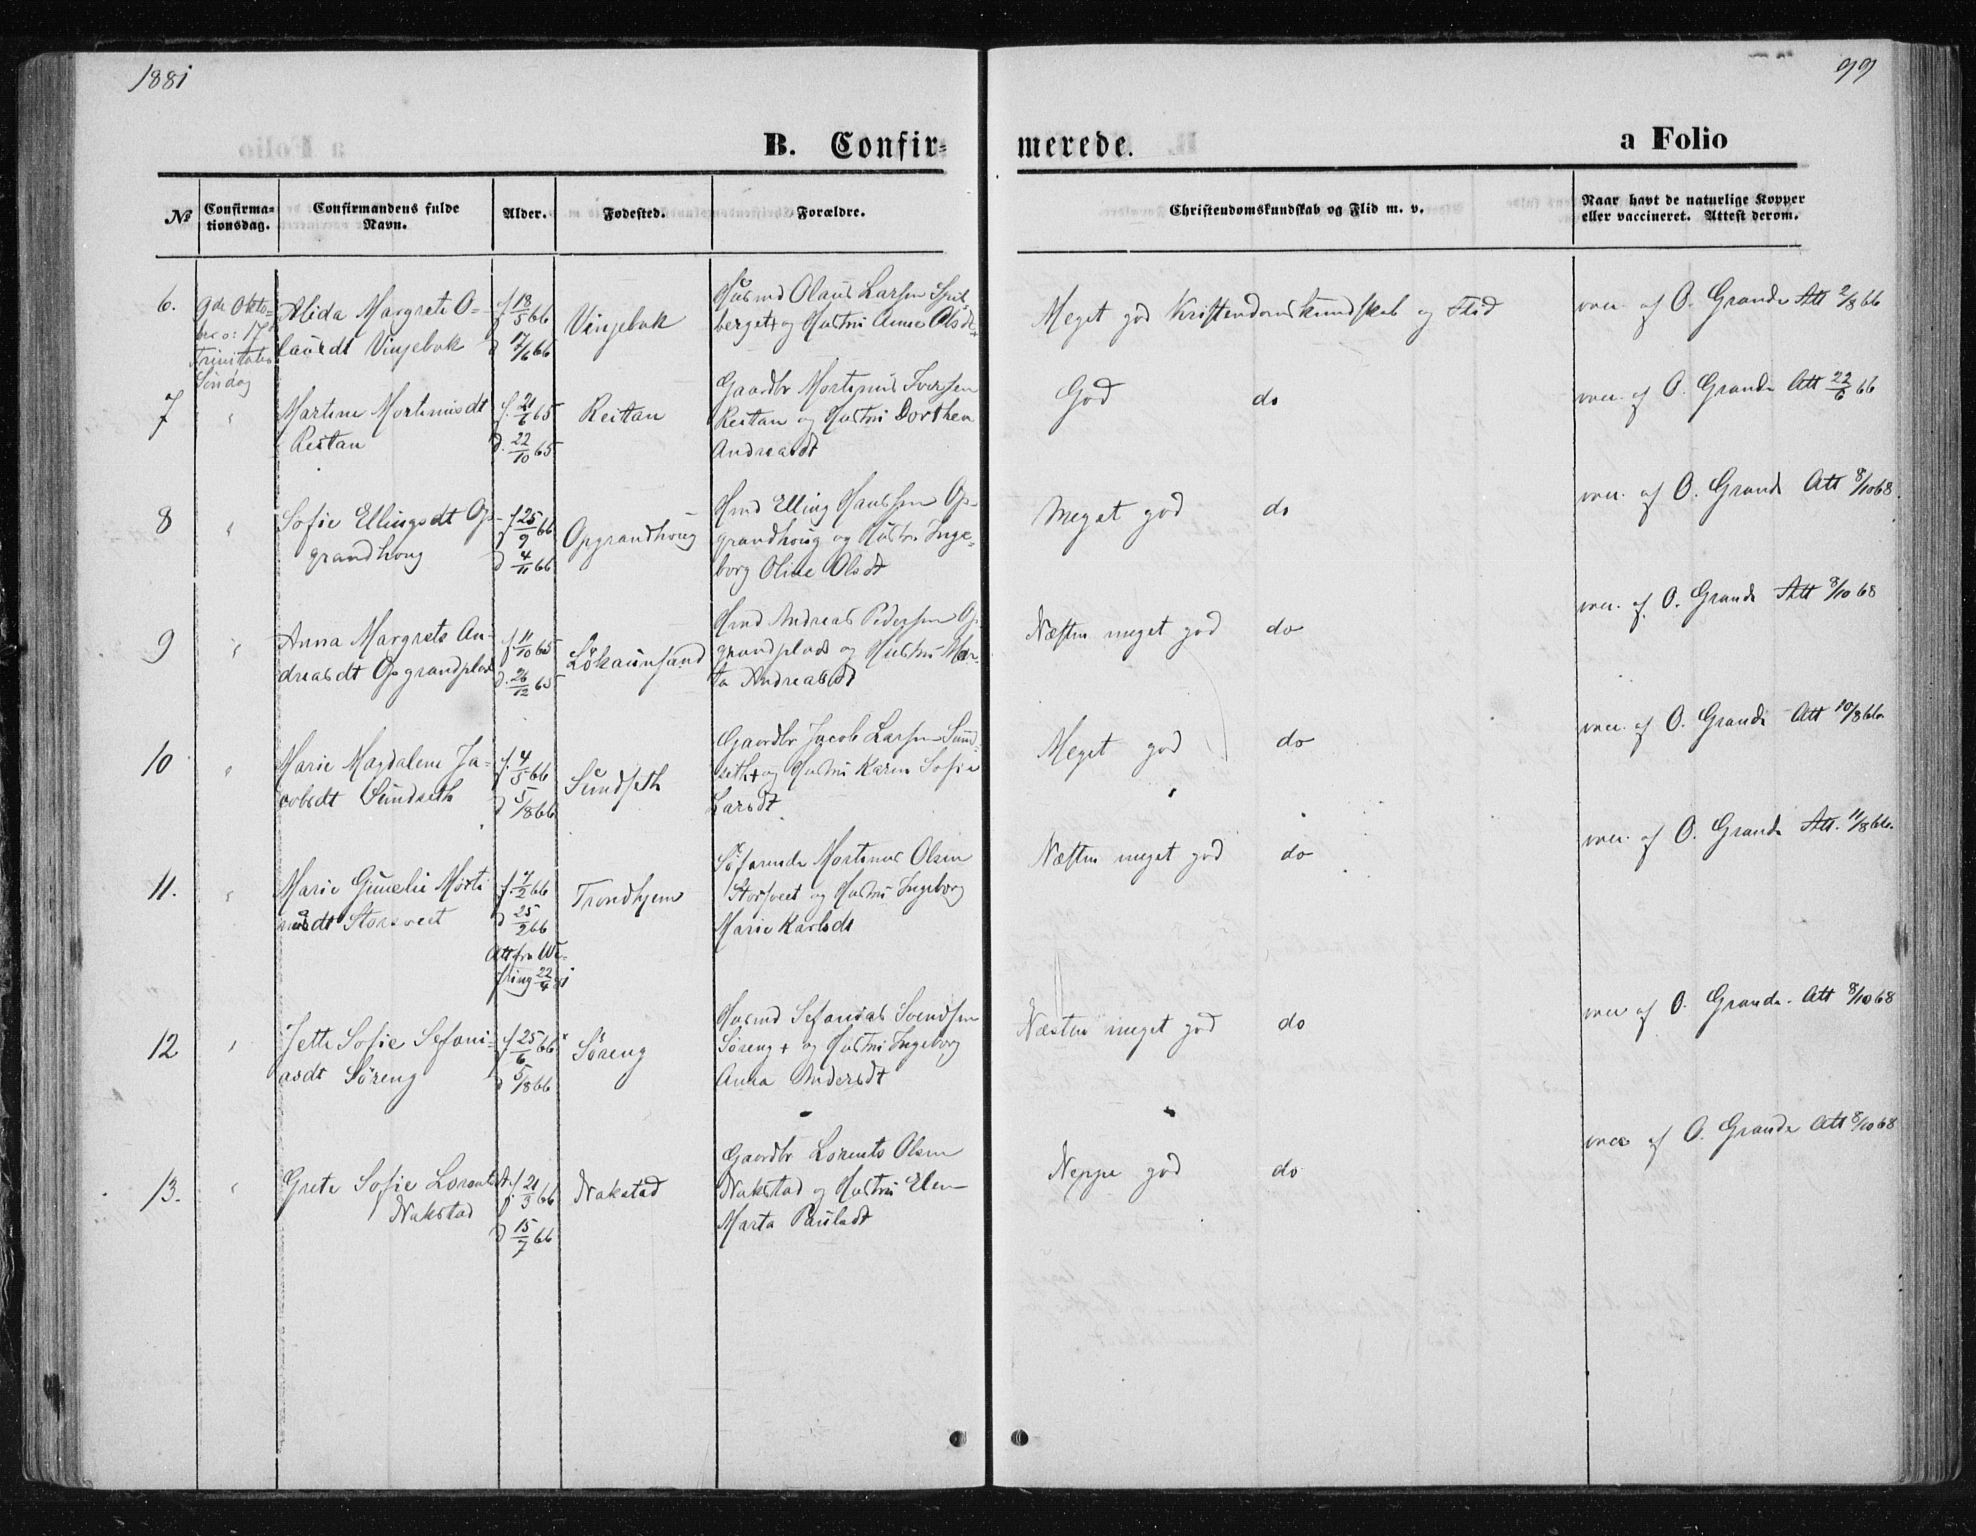 1881
99
B. Confir=
merede.
a Folio
No
Confirma=
tionsdag.
Confirmandens fulde
Navn.
Alder.
Fødested.
Forældre.
Christendomskundskab og Flid m. v.
Naar havt de naturlige Kopper
eller vaccineret. Attest derom.
6.
9de Okto-
bre o: 17
Trinitatis
Søndag
Alida Margrete O-
lausdt Vinjebak
f 13/5 66
d 17/6 66
Vinjebak
Husmd Olaus Larsen Spil-
berget + og Hustru Anne Olsdt
Meget god Kristendomskundskab og Flid
vacc. af O. Grande Att 2/8 66
7
"
Martine Mortinusdt
Reitan
f. 21/6 65
d. 22/10 65
Reitan
Gaardbr Mortinus Iversen
Reitan og Hustru Dorthea
Andreasdt
God do
vacc. af O. Grande Att 22/6 66
8
"
Sofie Ellingsdt Op-
grandhoug
f 25/9 66
d 4/11 66
Opgrandhoug
Hmd Elling Hanssen Op-
grandhoug og Hustru Inge-
borg Oline Olsdt
Meget god do
vacc. af O. Grande Att 8/10 68.
9
"
Anna Margrete An-
dreasdt Opgrandplads
f 11/10 65
d. 26/12 65
Løkaunsand
Hmd Andreas Pedersen Op-
grandplads og Hustru Mar-
ta Andreasdt
Næsten meget god do
vacc. af O. Grande Att 8/10 68
10
"
Marie Magdalene Ja-
cobsdt Sundseth
f. 4/5 66
d 5/8 66
Sundseth
Gaardbr Jacob Larsen Sund-
seth + og Hustru Karen Sofie
Larsdt
Meget god do
vacc. af O. Grande Att 10/8 66
11.
"
Marie Gunelie Morti
nusdt Storsveet
f. 7/2 66
d 25/2 66
Att fra We-
sling 22/4 81
Trondhjem
Søfarende Mortinus Olsen
Storsveet og Hustru Ingeborg
Marie Karlsdt
Næsten meget god do
vacc. af O. Grande Att. 11/8 66.
12
"
Jette Sofie Sefani-
asdt Søreng
f 25/6 66
d 5/8 66
Søreng
Husmd Sefanias Svendsen
Søreng + og Hustru Ingeborg
Anna Andersdt
Næsten meget god do
vacc af O. Grande. Att 8/10 68
13.
"
Grete Sofie Lorentsdt
Nakstad
f. 21/3 66
d 15/7 66
Nakstad
Gaardbr Lorents Olsen
Nakstad og Hustru Elen
Marta Paulsdt
Neppe god do
vacc af O. Grande Att 8/10 68